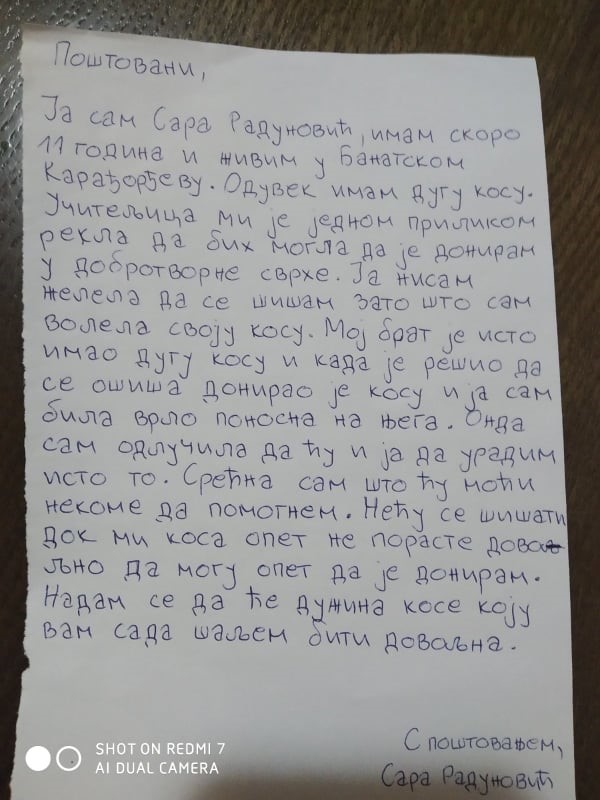 Поштовани,
Ја сам Сара Радуновић, имам скоро
11 година и живим у Банатском
Карађорђеву. Одувек имам дугу косу.
Учитељица ми је једном приликом
рекла да бих могла да је донирам
у добротворне сврхе. Ја нисам
желела да се шишам зато што сам
волела своју косу. Мој брат је исто
имао дугу косу и када је решио да
се ошиша донирао је косу и ја сам
била врло поносна на њега. Онда
сам одлучила да ћу и ја да урадим
исто то. Срећна сам што ћу моћи
некоме да помогнем. Нећу се шишати
док ми коса опет не порасте дово
љно да могу опет да је донирам.
Надам се да ће дужина косе коју
вам сада шаљем бити довољна.
С поштовањем,
Сара Радуновић
SHOT ON REDMI 7
AI DUAL CAMERA